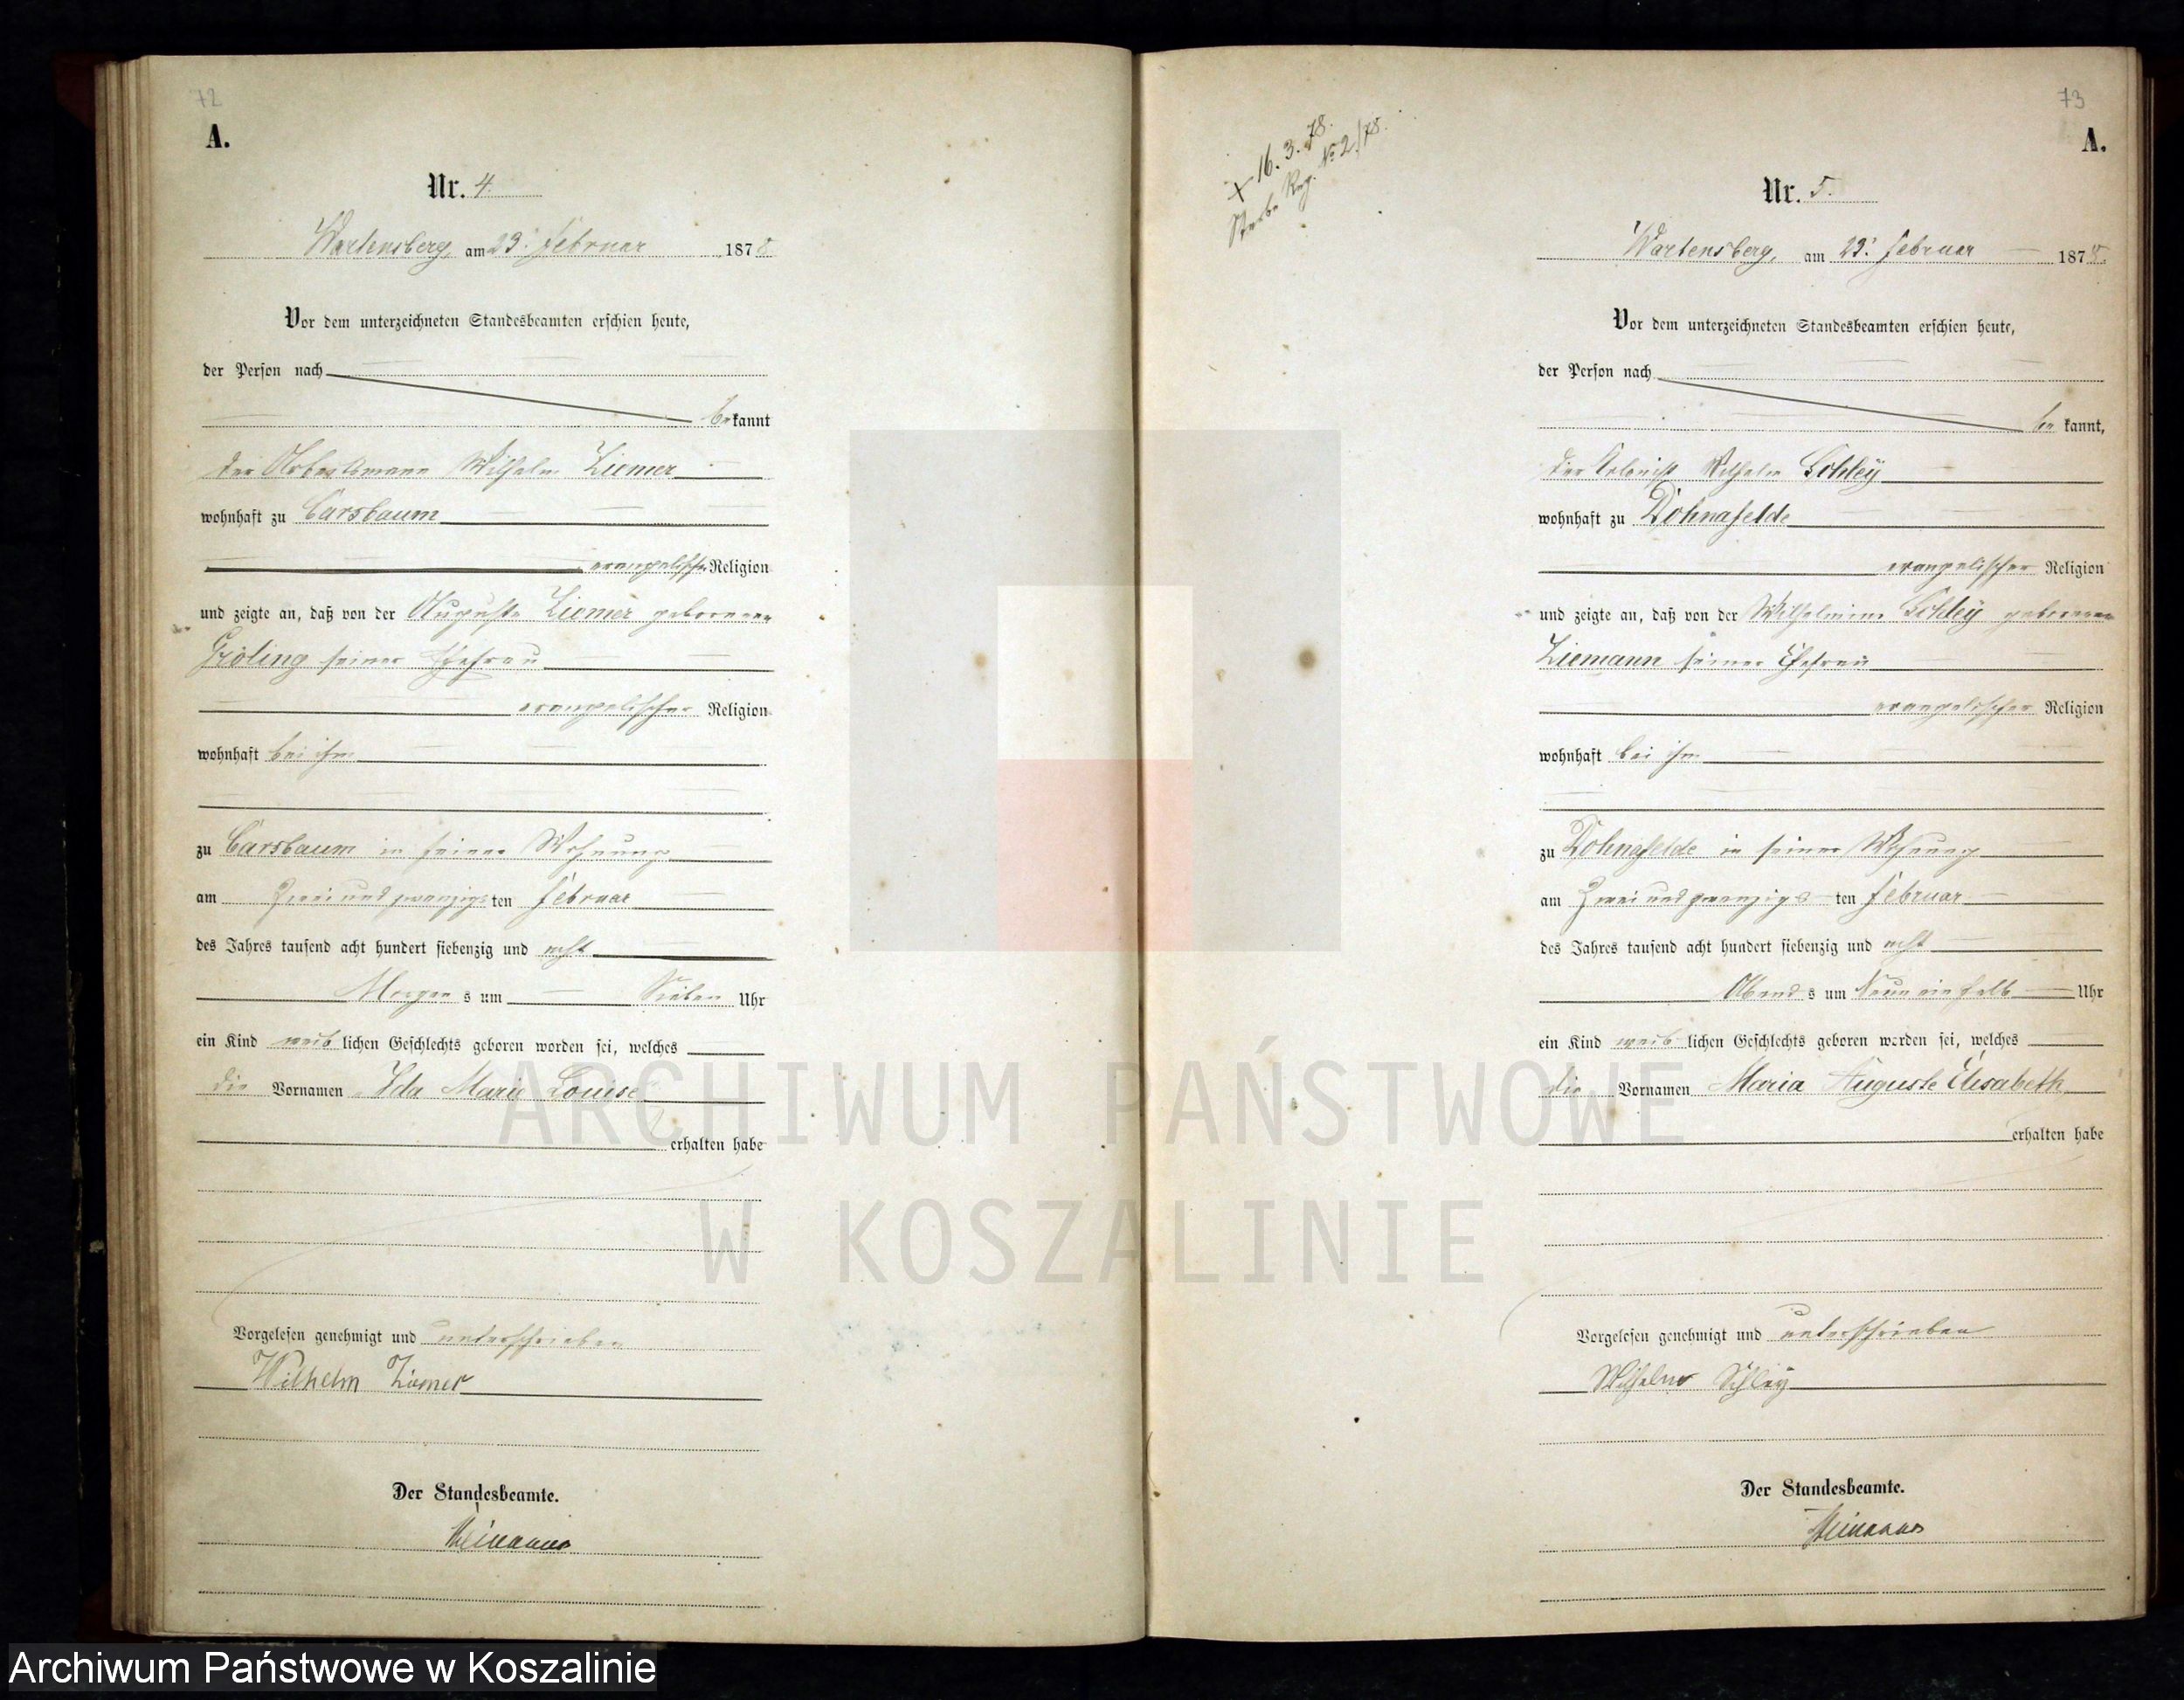 72
A.
Nr. 4.
Wartensberg, am 23. Februar 1878
Vor dem unterzeichneten Standesbeamten erschien heute,
der Person nach
bekannt
der Arbeitsmann Wilhelm Ziemer
wohnhaft zu Carsbaum
evangelischer Religion
und zeigte an, daß von der Auguste Ziemer geborenen
Gröling seiner Ehefrau
evangelischer Religion
wohnhaft bei ihm
zu Carsbaum in seiner Wohnung
am Zwei und zwanzigsten Februar
des Jahres tausend acht hundert siebenzig und acht
Morgens um Sieben Uhr
ein Kind weiblichen Geschlechts geboren worden sei, welches
die Vornamen Ida Marie Louise
erhalten habe
Vorgelesen genehmigt und unterschrieben
Wilhelm Ziemer
Der Standesbeamte.
73
A.
+ 16. 3. 78.
Sterbe Reg. No 2/78.
Nr. 5.
Wartensberg, am 23. Februar 1878.
Vor dem unterzeichneten Standesbeamten erschien heute,
der Person nach
bekannt,
der Kolonist Wilhelm Schley
wohnhaft zu Dohnafelde
evangelischer Religion
und zeigte an, daß von der Wilhelmine Schley geborenen
Ziemann seiner Ehefrau
evangelischer Religion
wohnhaft bei ihm
zu Dohnafelde in seiner Wohnung
am Zwei und zwanzigsten Februar
des Jahres tausend acht hundert siebenzig und acht
Abends um Neun ein halb Uhr
ein Kind weiblichen Geschlechts geboren worden sei, welches
die Vornamen Maria Auguste Elisabeth
erhalten habe
Vorgelesen genehmigt und unterschrieben
Wilhelm Schley
Der Standesbeamte.
ARCHIWUM PAŃSTWOWE
W KOSZALINIE
Archiwum Państwowe w Koszalinie